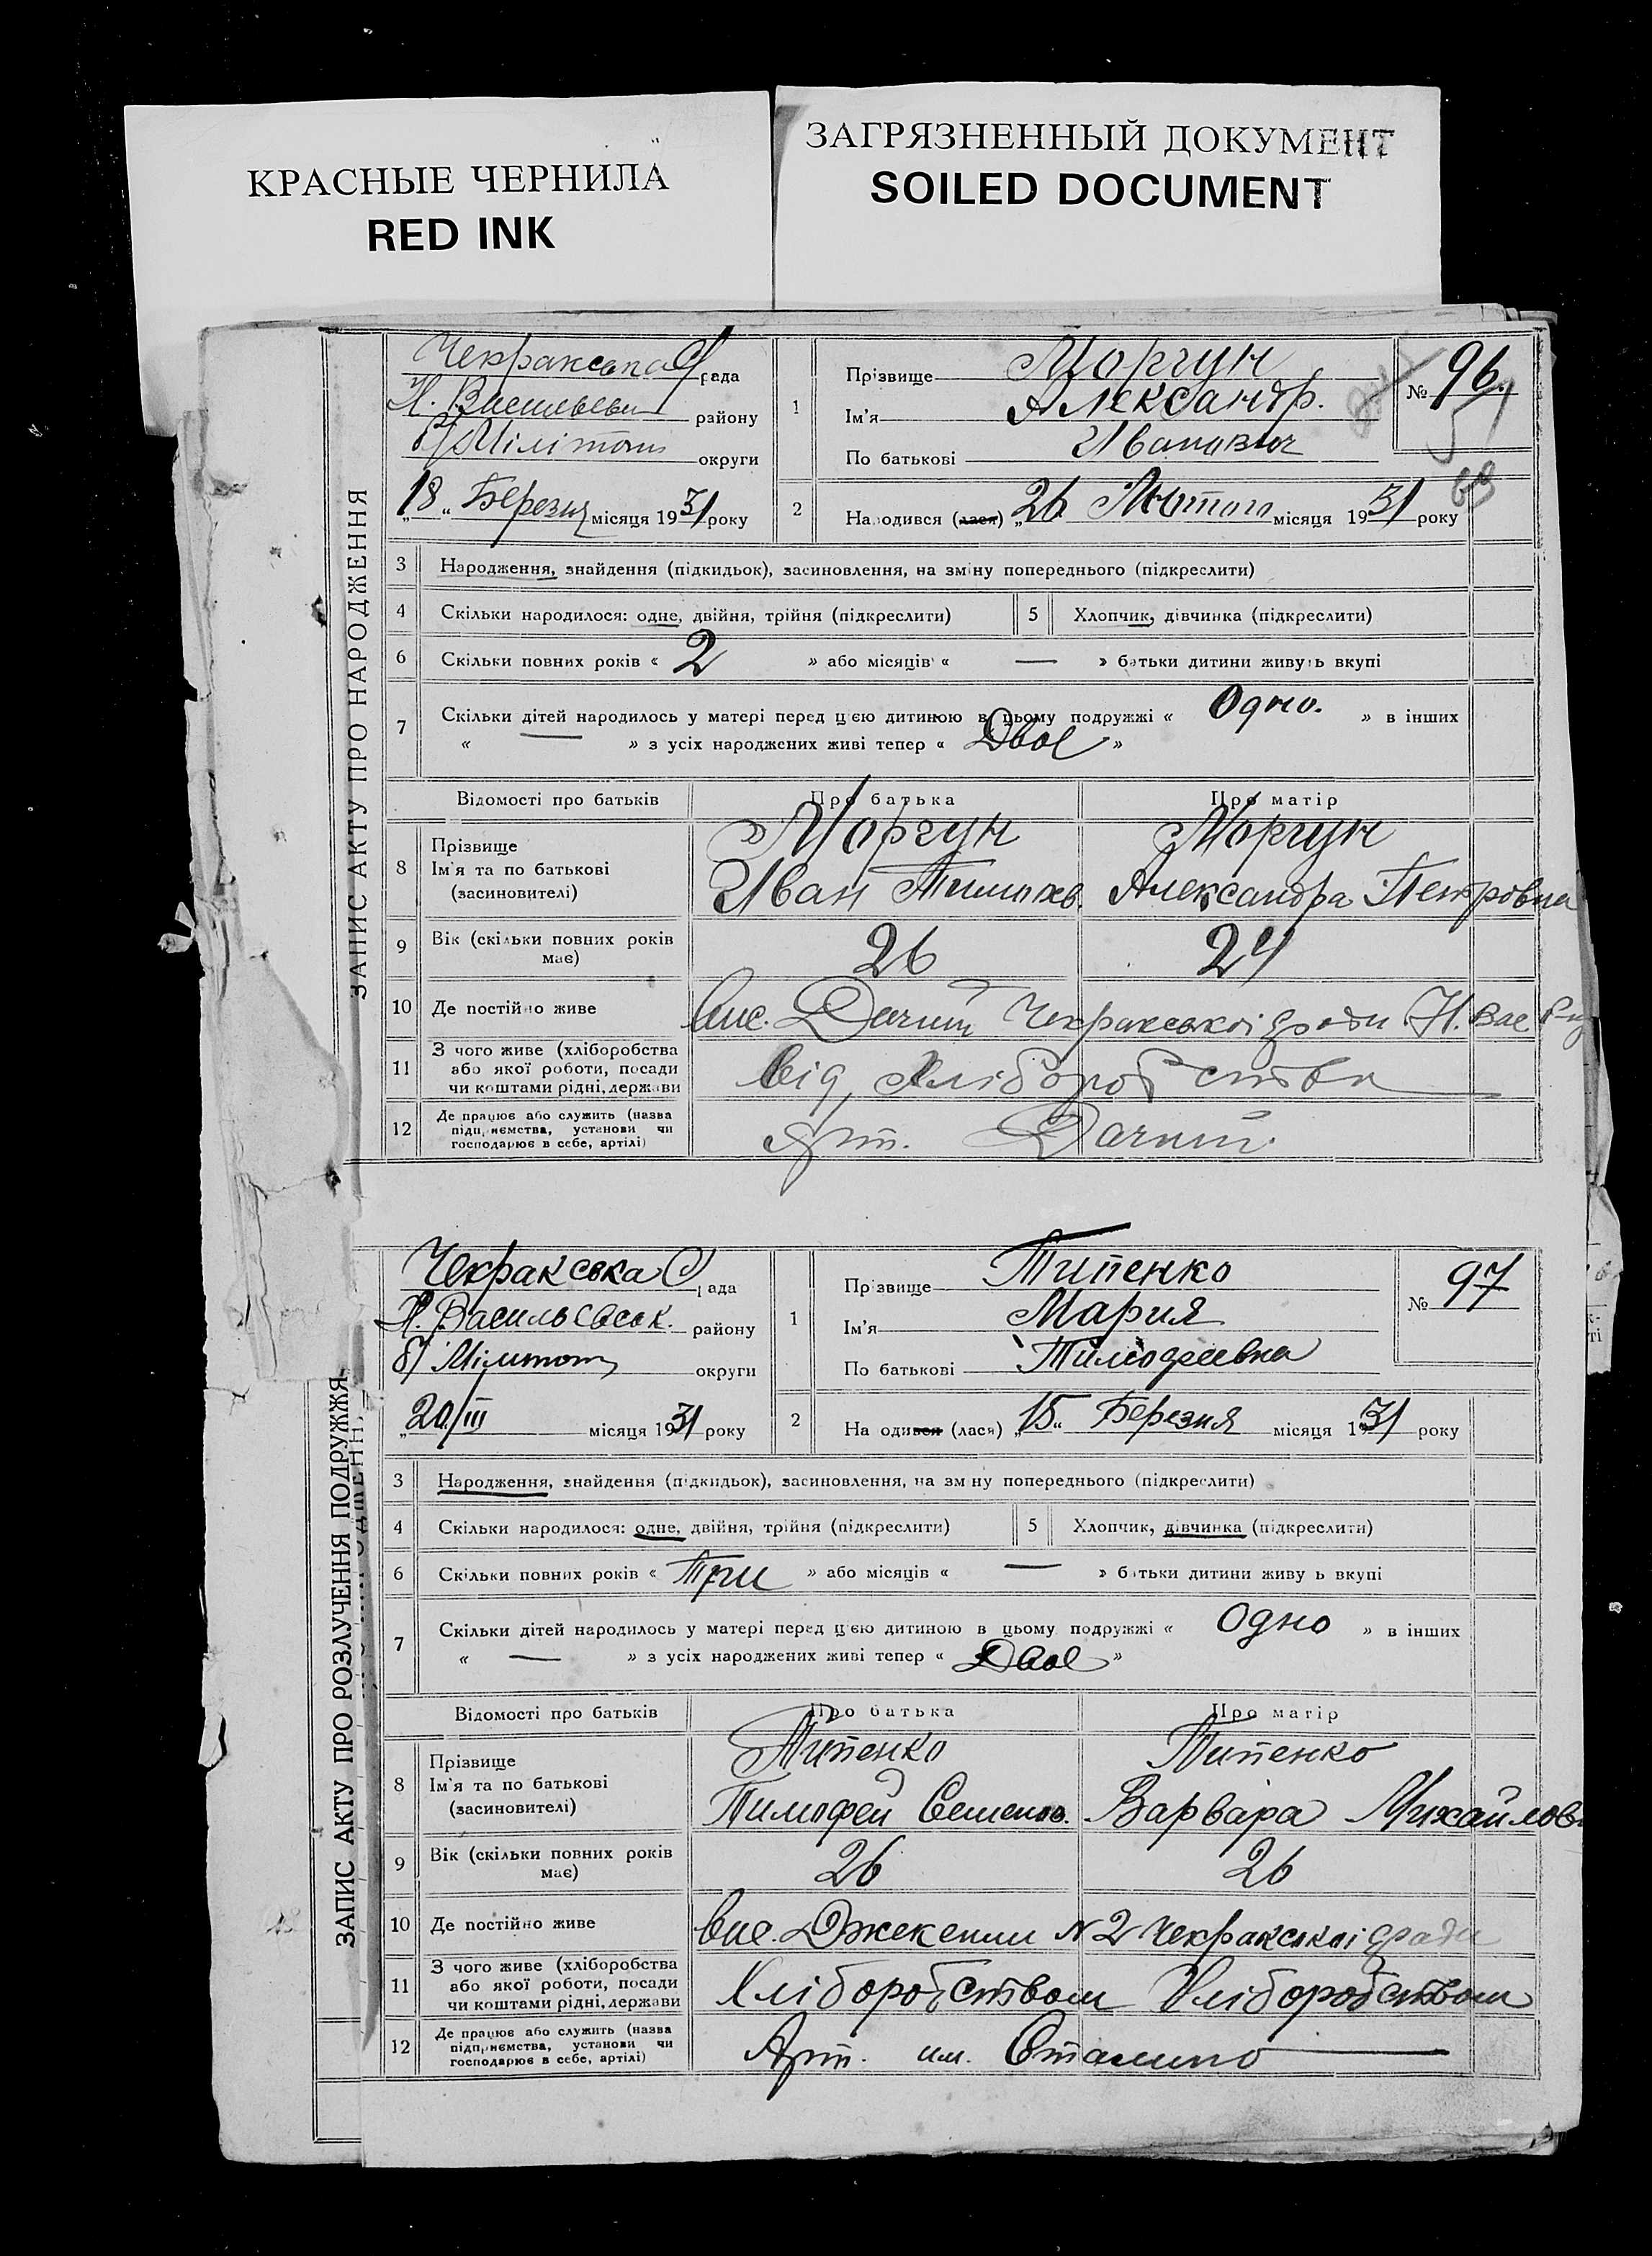 КРАСНЫЕ ЧЕРНИЛА
RED INK
ЗАГРЯЗНЕННЫЙ ДОКУМЕНТ
SOILED DOCUMENT
ЗАПИС АКТУ ПРО НАРОДЖЕННЯ
Чекракська С/рада
Н. Васильевськ району
б/Мілітоп округи
„18“ Березня місяця 1931 року
1
Прізвище Моргун
Ім'я Александр.
По батькові Иванович
№ 96.
2
Народився (лася) „26 Лютого місяця 1931 року
3 Народження, знайдення (підкидьок), засиновлення, на зміну попереднього (підкреслити)
4 Скільки народилося: одне, двійня, трійня (підкреслити) 5 Хлопчик, дівчинка (підкреслити)
6 Скільки повних років « 2 » або місяців « — » батьки дитини живуть вкупі
7 Скільки дітей народилось у матері перед цією дитиною в цьому подружжі « Одно. » в інших
« — » з усіх народжених живі тепер « Двоє »
Відомості про батьків Про батька Про матір
8 Прізвище
Ім'я та по батькові
(засиновителі)
Моргун Моргун
Иван Тимохв. Александра Петровна
9 Вік (скільки повних років має) 26 24
10 Де постійно живе вис. Дачий Чекракської с/ради Н. Вас р-ну
11 З чого живе (хліборобства
або якої роботи, посади
чи коштами рідні, держави
від хліборобства
12 Де працює або служить (назва
підприємства, установи чи
господарює в себе, артілі)
Арт. Дачий.
Чекракська С/рада
Н. Васильевськ. району
б/Мілитоп округи
„20/III місяця 1931 року
1
Прізвище Типенко
Ім'я Мария
По батькові Тимофеевна
№ 97
2
Народився (лася) „15“ Березня місяця 1931 року
3 Народження, знайдення (підкидьок), засиновлення, на зміну попереднього (підкреслити)
4 Скільки народилося: одне, двійня, трійня (підкреслити) 5 Хлопчик, дівчинка (підкреслити)
6 Скільки повних років « Три » або місяців « — » батьки дитини живуть вкупі
7 Скільки дітей народилось у матері перед цією дитиною в цьому подружжі « Одно » в інших
« — » з усіх народжених живі тепер « Двоє »
Відомості про батьків Про батька Про матір
8 Прізвище
Ім'я та по батькові
(засиновителі)
Типенко Типенко
Тимофей Семенов. Варвара Михайлов
9 Вік (скільки повних років має) 26 26
10 Де постійно живе вис. Джекелни N 2 Чекракської с/ради
11 З чого живе (хліборобства
або якої роботи, посади
чи коштами рідні, держави
Хліборобством Хліборобством
12 Де працює або служить (назва
підприємства, установи чи
господарює в себе, артілі)
Арт. им. Сталино
ЗАПИС АКТУ ПРО РОЗЛУЧЕННЯ ПОДРУЖЖЯ